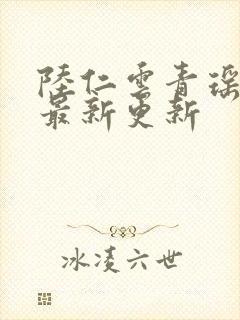 陸仁雲青瑶
最新更新
冰凌六世